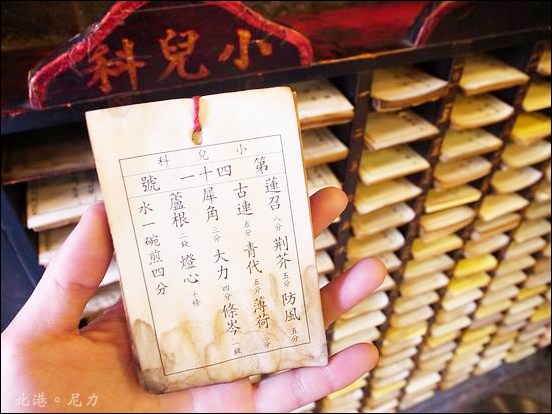 小兒科
小兒科
第四十一號
蓮召八分 荆芥五分 防風五分
古連五分 青代五分 薄荷二分
犀角三分 大力四分 條岑一錢
蘆根二錢 燈心十條
水一碗煎四分
北港。尼力